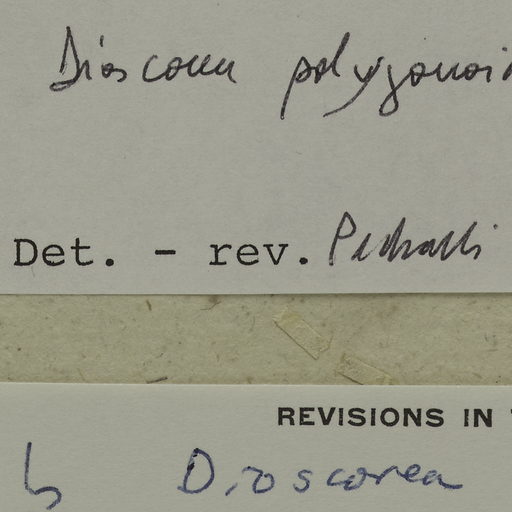 Dioscorea polygonoi
Det. - rev. Pedralli
REVISIONS IN
Dioscorea